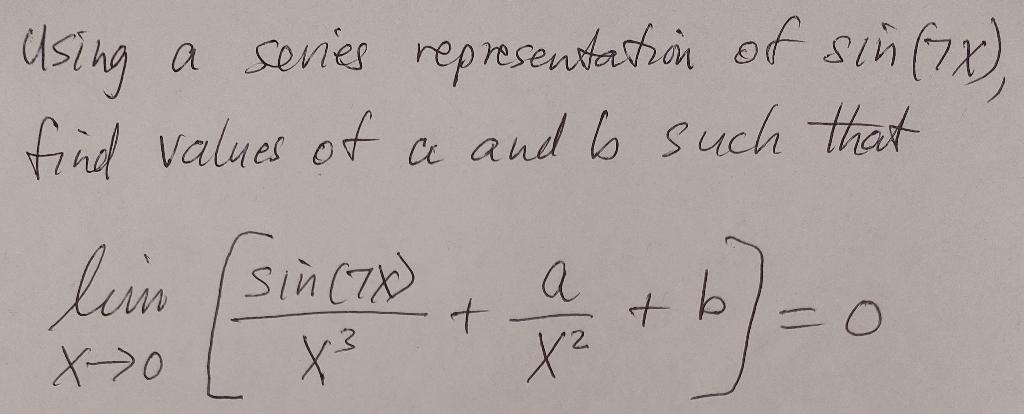 Using a series representation of sin(7x),
find values of a and b such that
lim x→0 [sin(7x)/x³ + a/x² + b] = 0